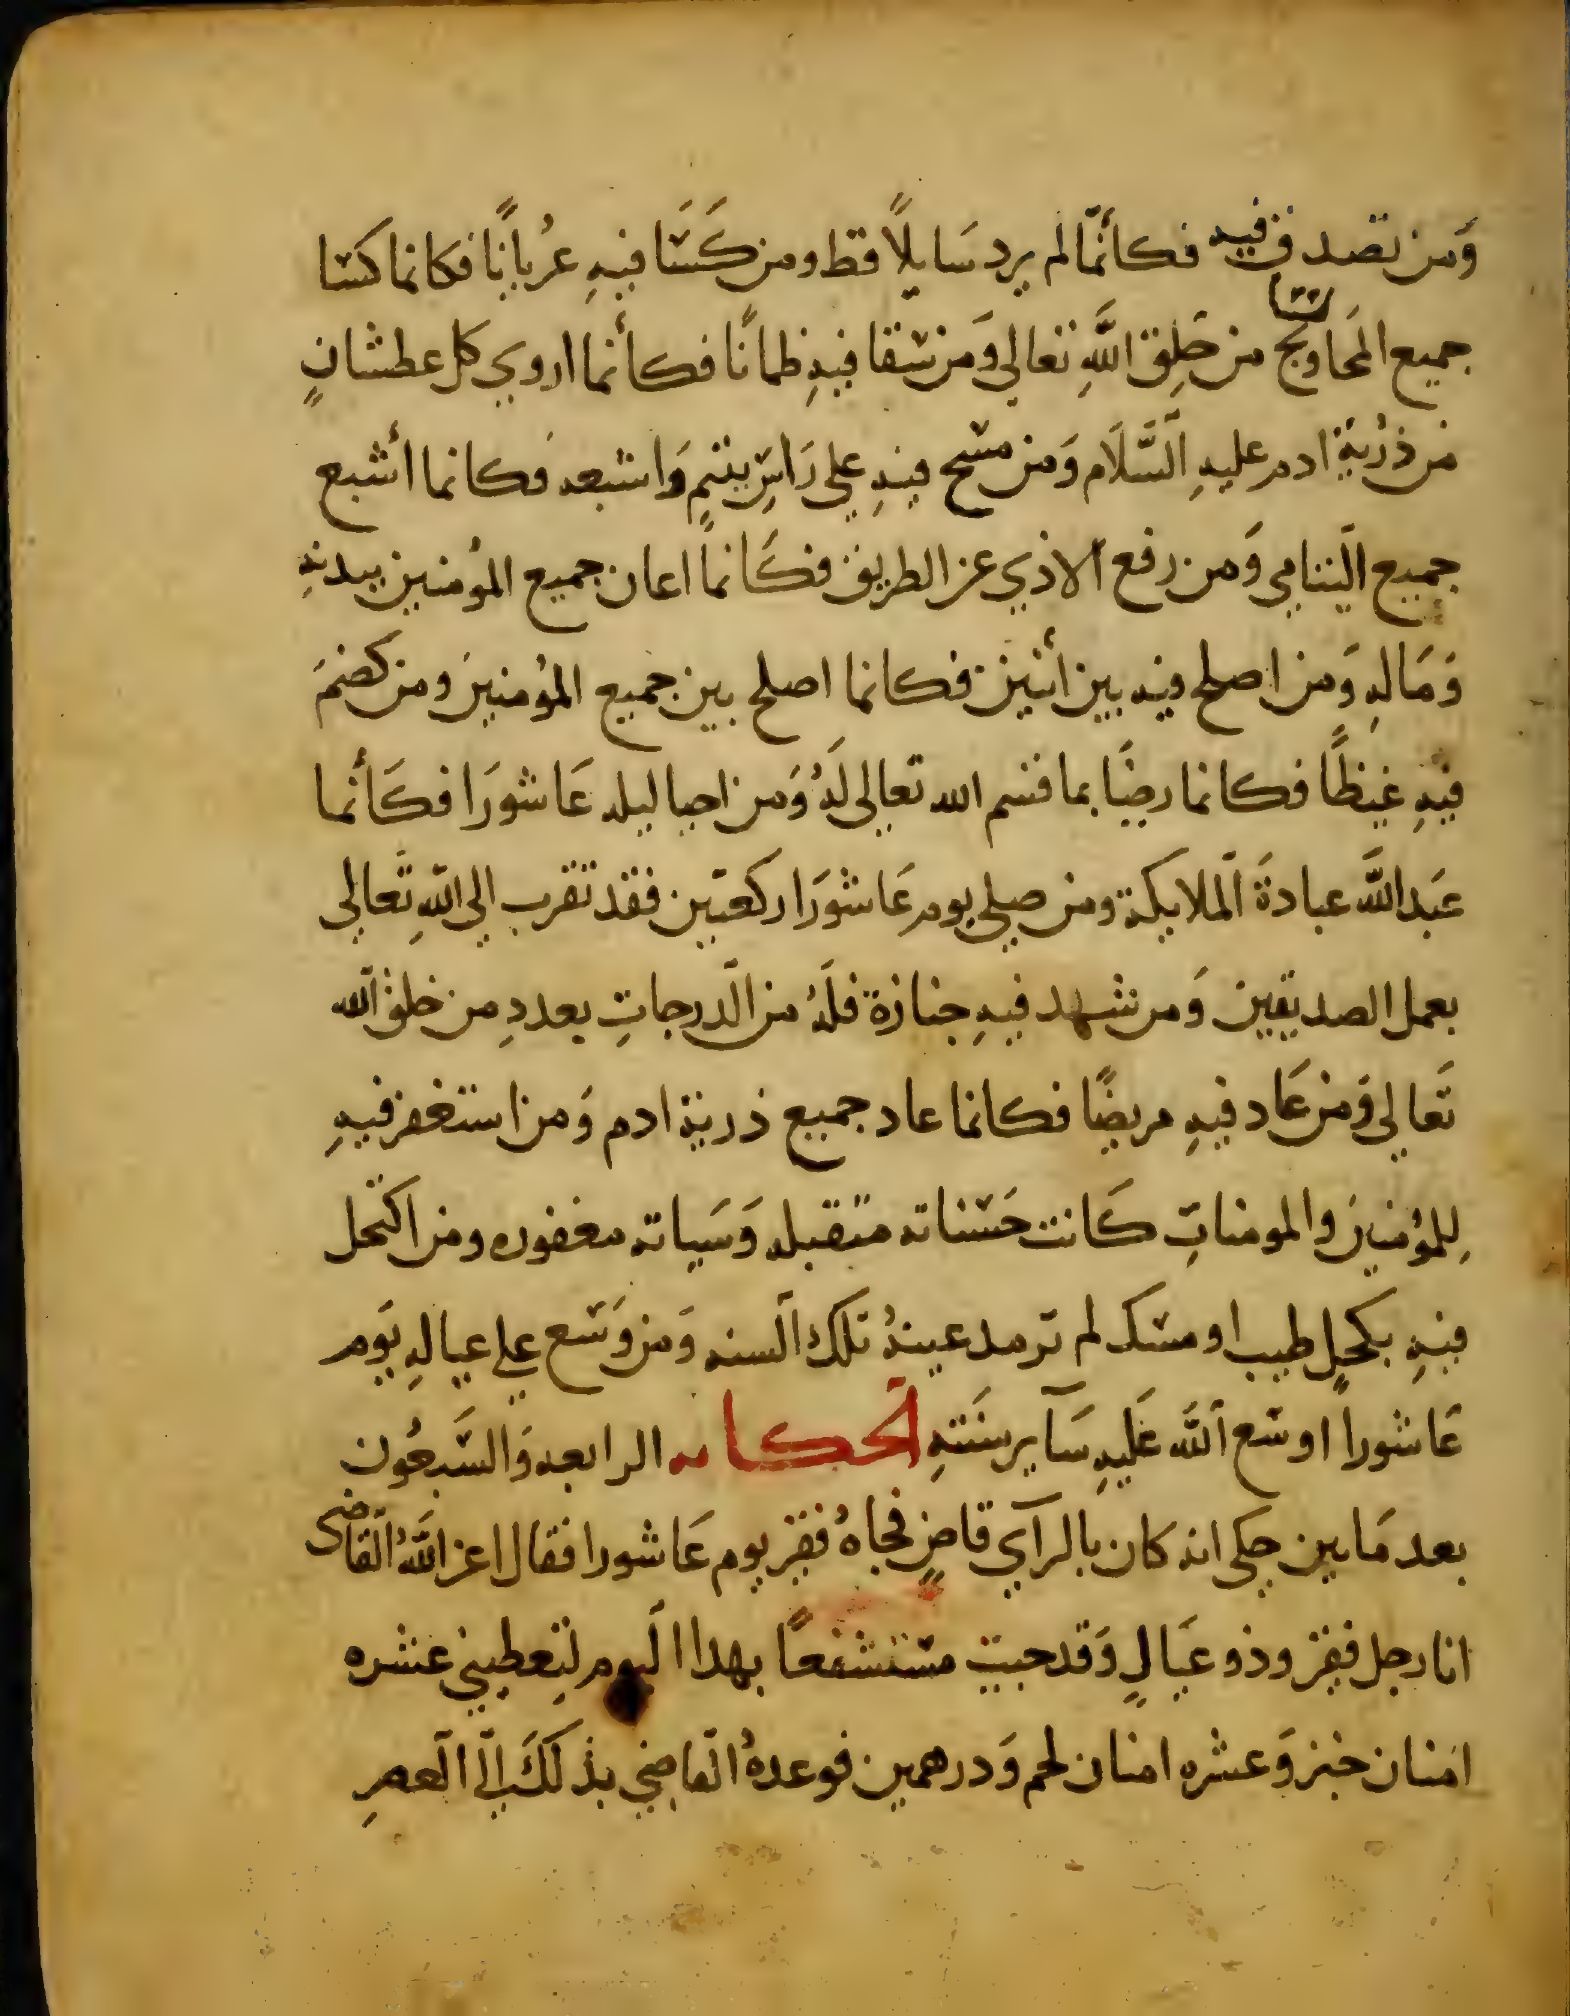 وَمن تصدق فيه فكأنمّا لم يرد سَايلًا قط ومن كَسَا فيهِ عُريانًا فكانما كسَا
جميع المَحاويج من خَلِق اللَّهِ تعالي وَمن سقا فيهِ ظمانًا فكأنما اروي كل عطشانٍ
من ذُريةِ ادم عليهِ اَلسَّلَام وَمن مسح فيهِ علي رَاسِ يتيمٍ وَاشبعه فكانما أشبع
جميع اليَتامي وَمن رفع الاذي عن الطريق فكَانماَ اعان جميع المؤمنين ببدنهِ
وَمَالهِ وَمن اصلح فيه بين اثنين فكانما اصلح بين جميع المؤمنينَ ومن كضمَ
فيهِ غيظًا فكانما رضيًا بما قسم الله تعالى لَهُ وَمن احيا ليله عَاشورَا فكَأنما
عَبد اللَّه عبادةَ اَلملايكة ومن صلي يوم عَاشورَا ركعتين فقد تقرب الي اللهِ تَعالي
بعمل الصديقين وَمن شهد فيهِ جنازة فلَهُ من الَدرجاتِ بعددِ من خلق اَلله
تَعالي وَمن عَاد فيهِ مريضًا فكانما عاد جميع ذرية ادم وَمن استغفر فيهِ
لِلمؤمنينَ والمومناتِ كَانت حَسناته متقبله وَسَياته مغفوره ومن اكتحل
فيهِ بكحلٍ طيب او مسك لم ترمد عينهُ تلك اَلسنه وَمن وَسع علي عيالهِ يَوم
عَاشورا اوسَع اَللَّه عَليهِ سَآير سنَتهِ اَلحكاىه الرابعه وَالسَّبعُون
بعد مَايين حِكى انه كان بالرآي قاضٍ فجاهُ فقير يوم عَاشورا فقال اعز اللَّهُ اَلقَاضي
انا رجل فقير وذو عيَالٍ وَقد جيت مستشفعًا بهدا اَليوم لِتعطيني عشره
امنان خبز وَعشره امنان لحم وَدرهمين فوعدهُ القاضي بذلكَ اِلَي اَلعصرِ